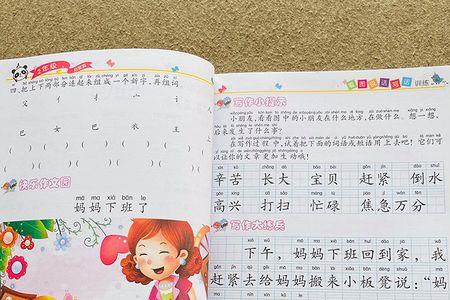 2年级
四、把上下两部分连起来组成一个新字,再组词
父 亻 扌 山 讠
巴 女 巳 衣 王
( ) ( ) ( ) ( ) ( )
快乐作文园
mā ma xià bān le
妈妈下班了
看图说话写话训练
写作小提示
小朋友,看看图中的小朋友在什么地方,在做什么。想一想,
后来发生了什么事?
在写作过程中,试着把下面的词语或短语用上去吧!它们可
以让你的文章更加生动哦!
辛苦 长大 宝贝 赶紧 倒水
高兴 打扫 忙碌 焦急万分
写作大练兵
下午,妈妈下班回到家,我
赶紧去给妈妈搬来小板凳说:“妈